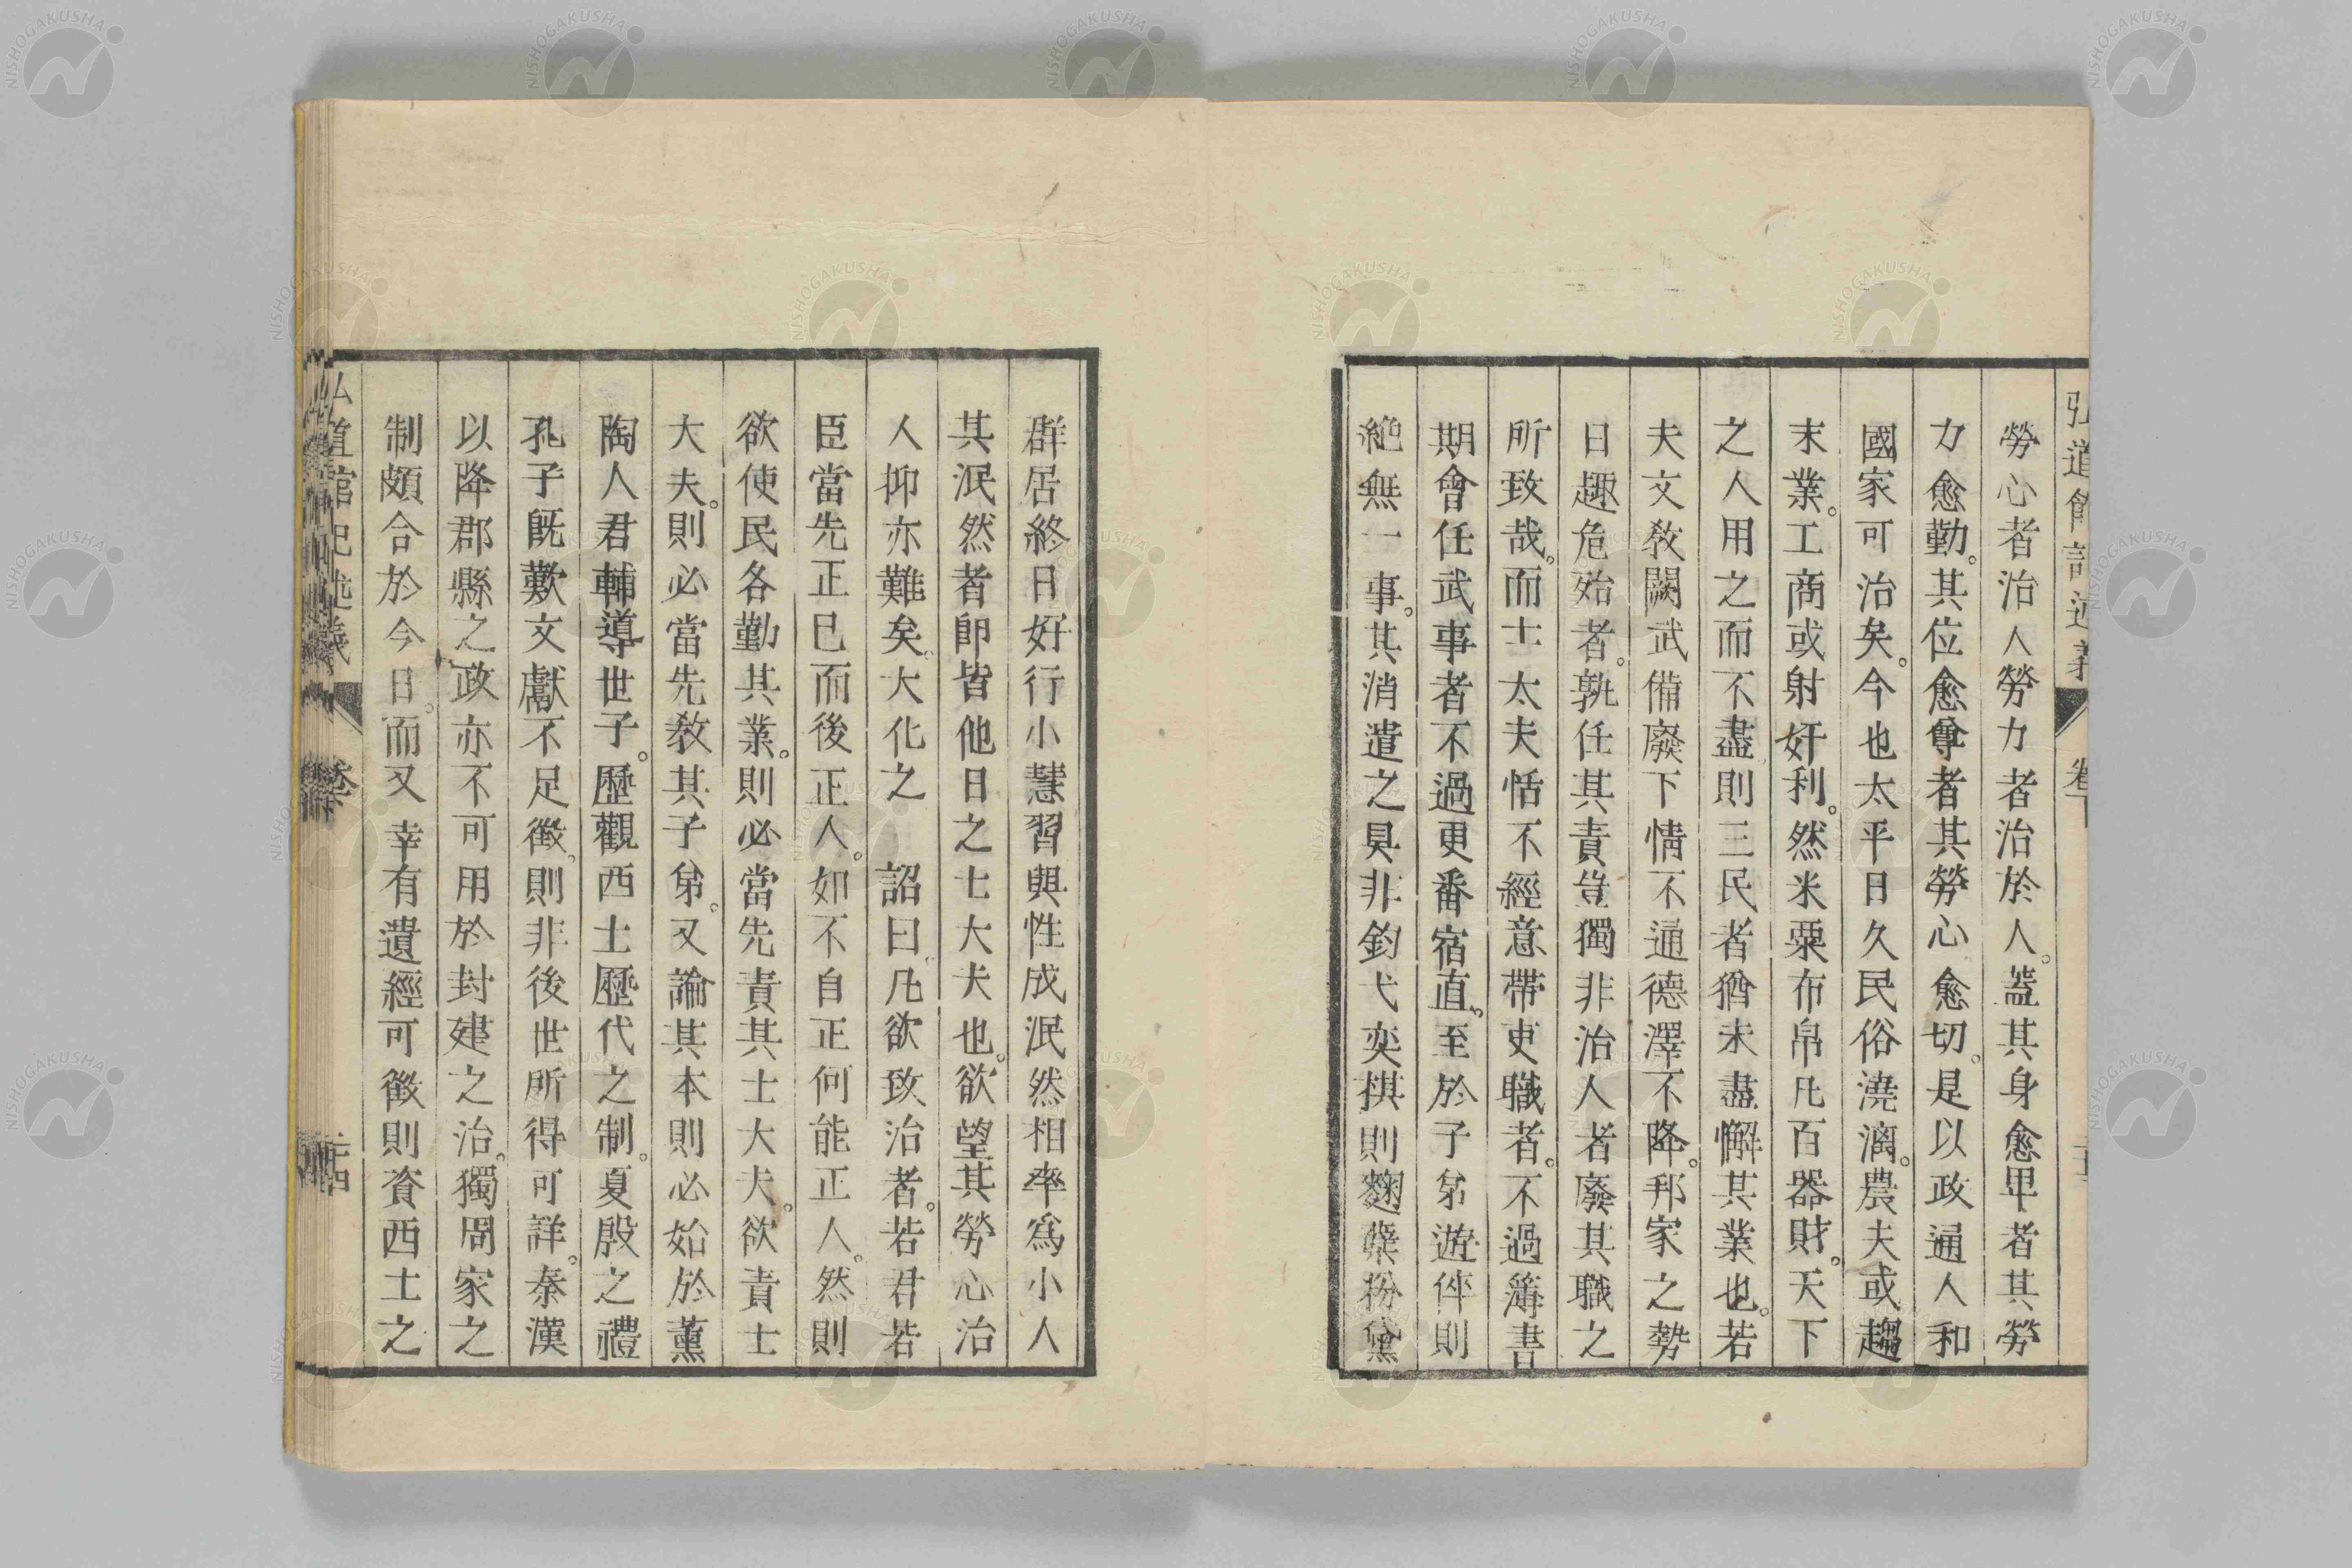 弘道館記述義 卷下
勞心者治人勞力者治於人。蓋其身愈卑者其勞
力愈勤。其位愈尊者其勞心愈切。是以政通人和
國家可治矣。今也太平日久民俗澆漓。農夫或趨
末業。工商或射奸利。然米粟布帛凡百器財。天下
之人用之而不盡則三民者猶未盡懈其業也。若
夫文敎闕武備廢下情不通德澤不降。邦家之勢
日趣危殆者。孰任其責豈獨非治人者廢其職之
所致哉。而士大夫恬不經意帶吏職者。不過簿書
期會任武事者不過更番宿直。至於子弟遊倅則
絶無一事。其消遣之具非釣弋奕棋則麴糵粉黛
群居終日好行小慧習與性成泯然相率爲小人
其泯然者卽皆他日之士大夫也。欲望其勞心治
人抑亦難矣。大化之 詔曰。凡欲致治者。若君若
臣當先正己而後正人。如不自正何能正人。然則
欲使民各勤其業。則必當先責其士大夫。欲責士
大夫。則必當先敎其子弟。又論其本則必始於薰
陶人君輔導世子。歷觀西土歷代之制。夏殷之禮
孔子既歎文獻不足徵。則非後世所得可詳。秦漢
以降郡縣之政亦不可用於封建之治。獨周家之
制頗合於今日。而又幸有遺經可徵則資西土之
弘道館記述義 卷 二十四
NISHOGAKUSHA